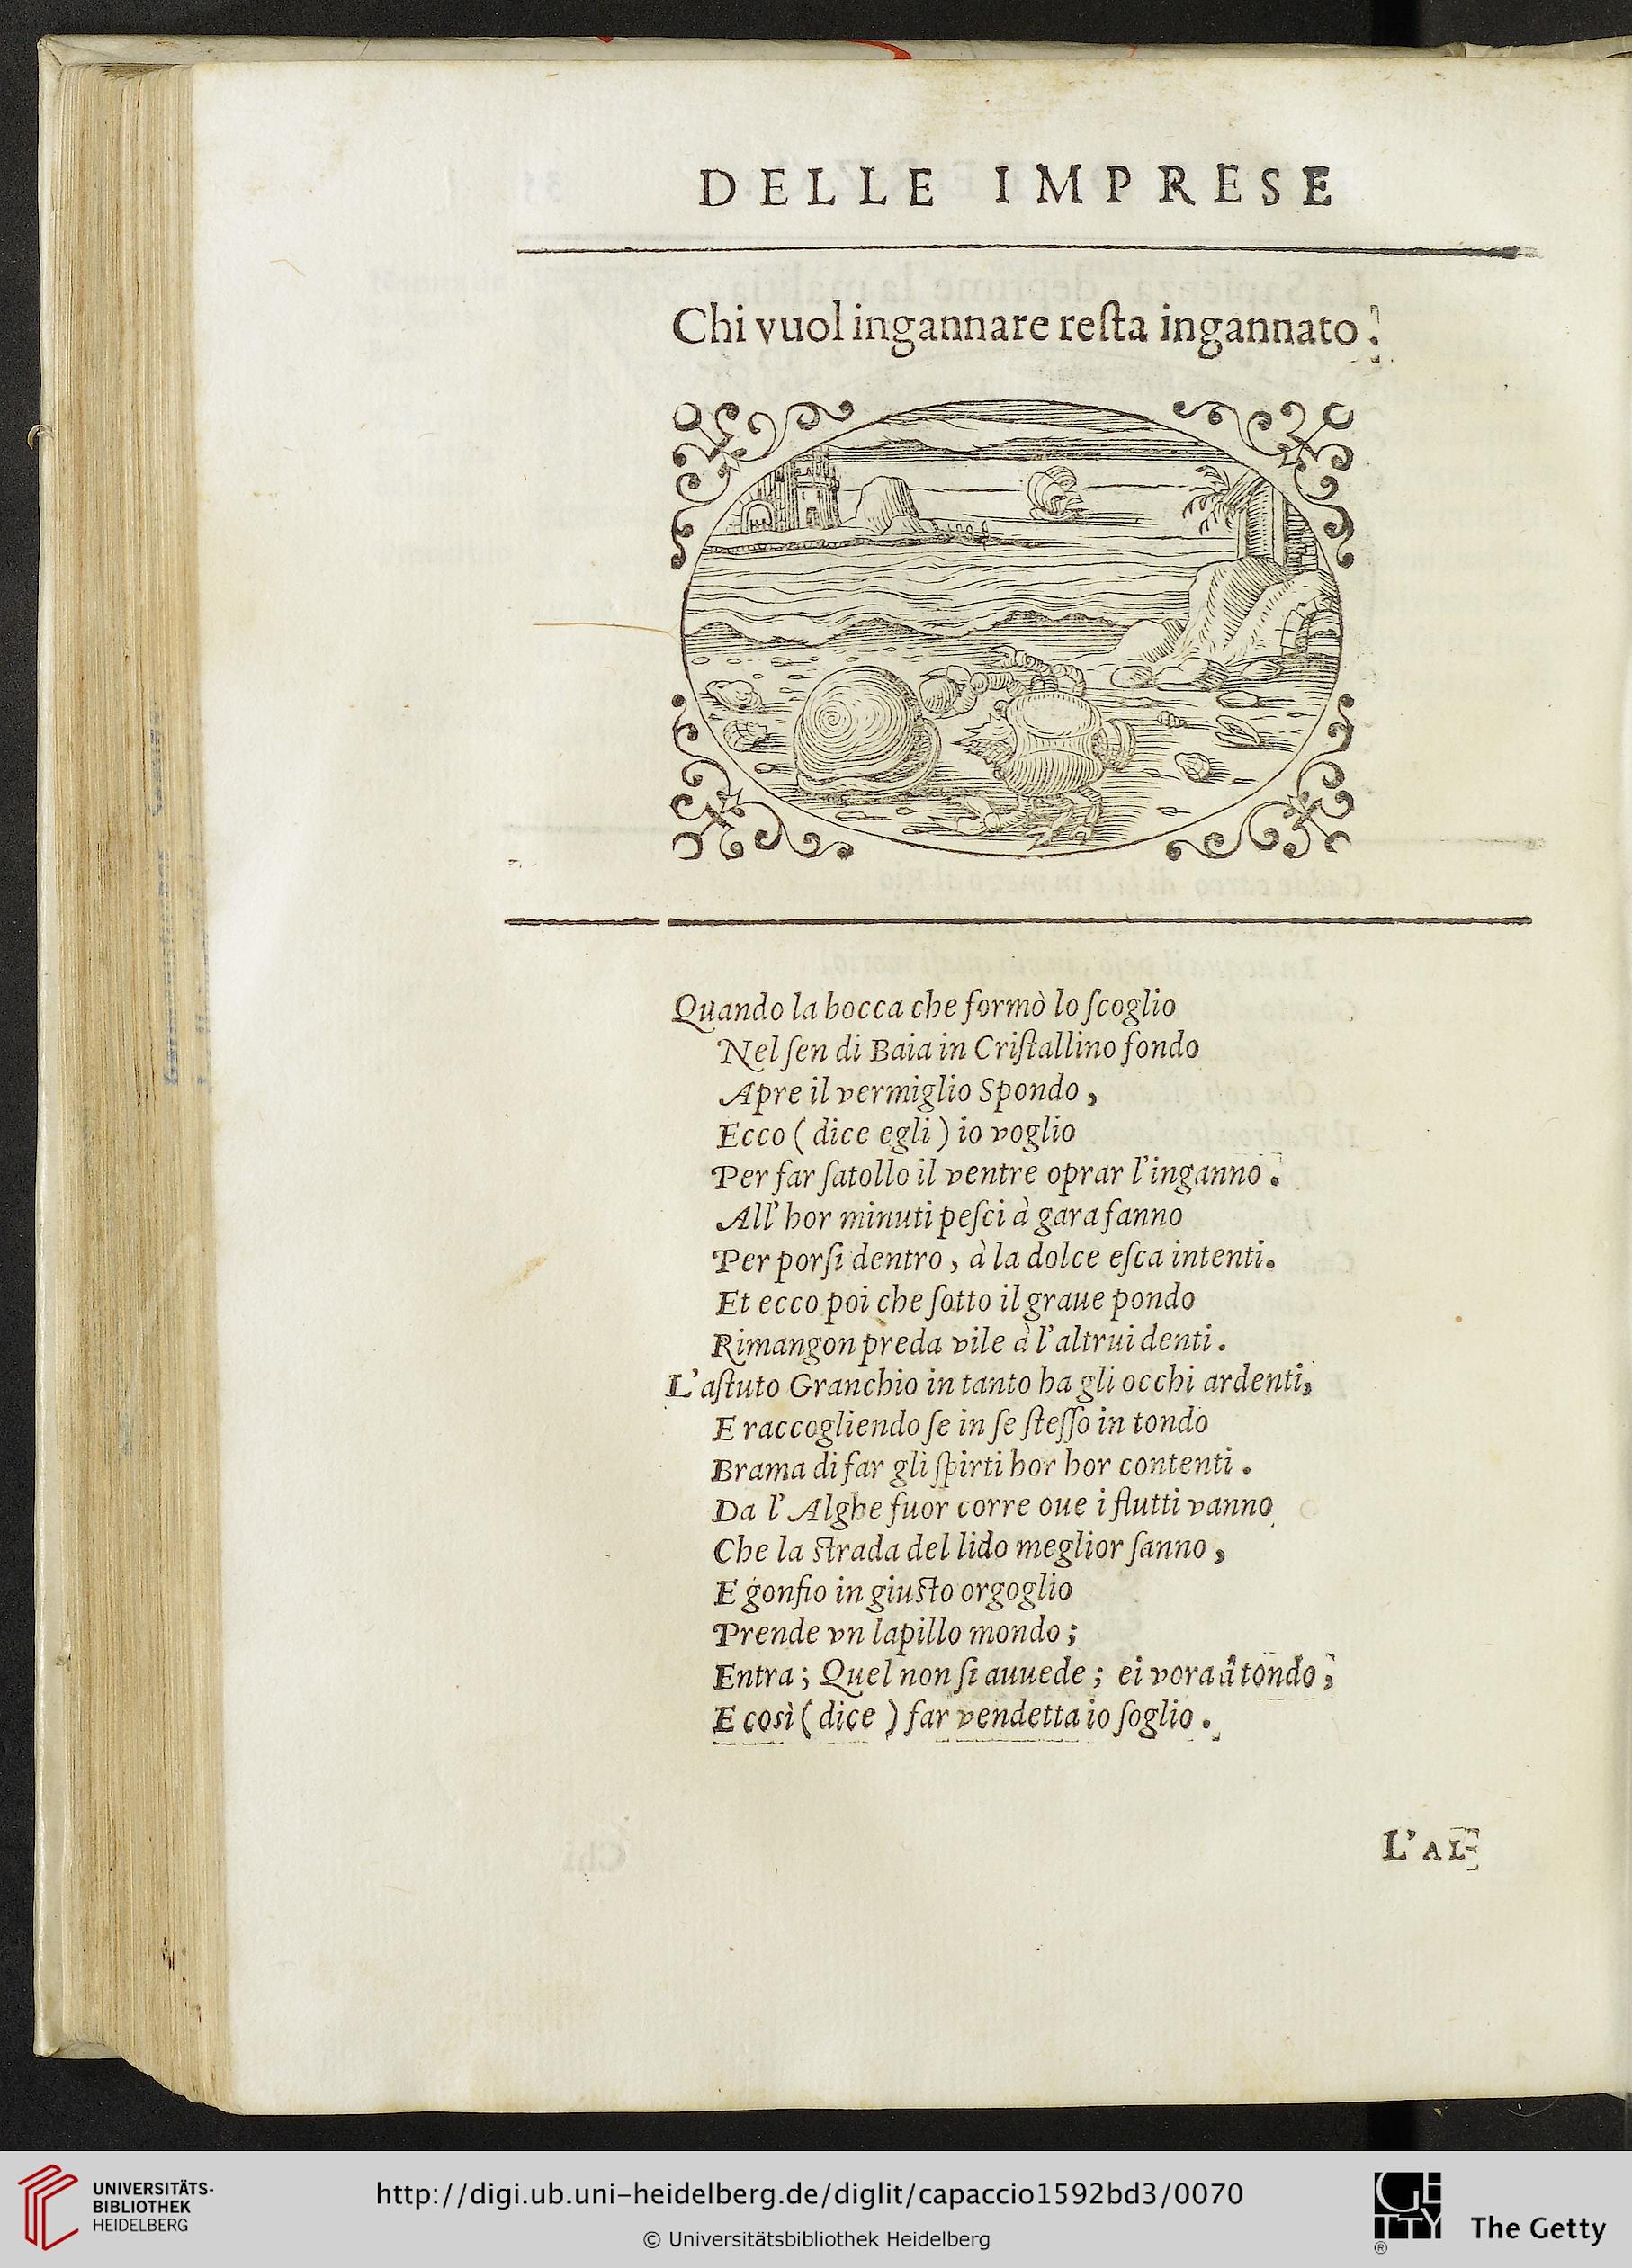 DELLE IMPRESE
Chi vuol ingannare reſta ingannato.
Quando la bocca che formò lo ſcoglio
Nel ſen di Baia in Criſtallino fondo
Apre il vermiglio Spondo,
Ecco ( dice egli ) io voglio
Per far ſatollo il ventre oprar l'inganno.
All' hor minuti peſci à gara fanno
Per porſi dentro, à la dolce eſca intenti.
Et ecco poi che ſotto il graue pondo
Rimangon preda vile à l'altrui denti.
L'aſtuto Granchio in tanto ha gli occhi ardenti,
E raccogliendo ſe in ſe ſteſſo in tondo
Brama di far gli ſpirti hor hor contenti.
Da l' Alghe fuor corre oue i flutti vanno
Che la ſtrada del lido meglior ſanno,
E gonfio in giuſto orgoglio
Prende vn lapillo mondo;
Entra; Quel non ſi auuede; ei vora à tondo,
E così ( dice ) far vendetta io ſoglio.
L'AL-
UNIVERSITÄTS-
BIBLIOTHEK
HEIDELBERG
http://digi.ub.uni-heidelberg.de/diglit/capaccio1592bd3/0070
© Universitätsbibliothek Heidelberg
GETTY
®
The Getty